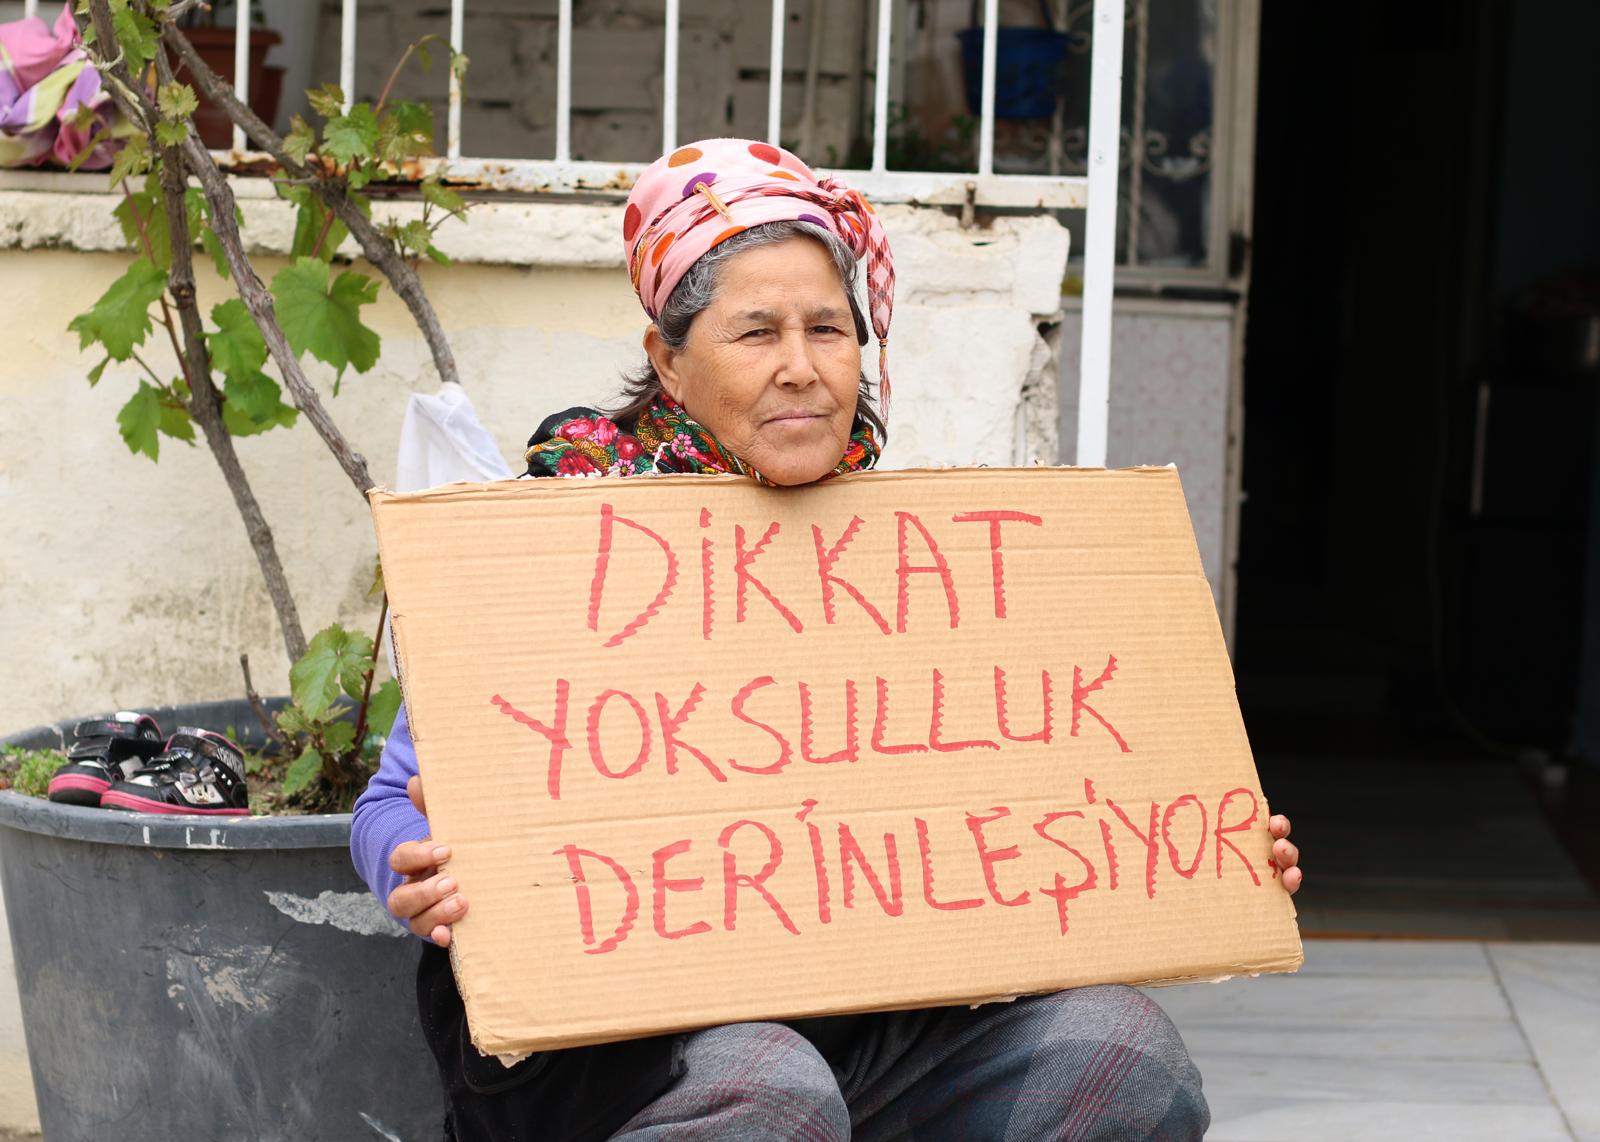 DİKKAT
YOKSULLUK
DERİNLEŞİYOR.